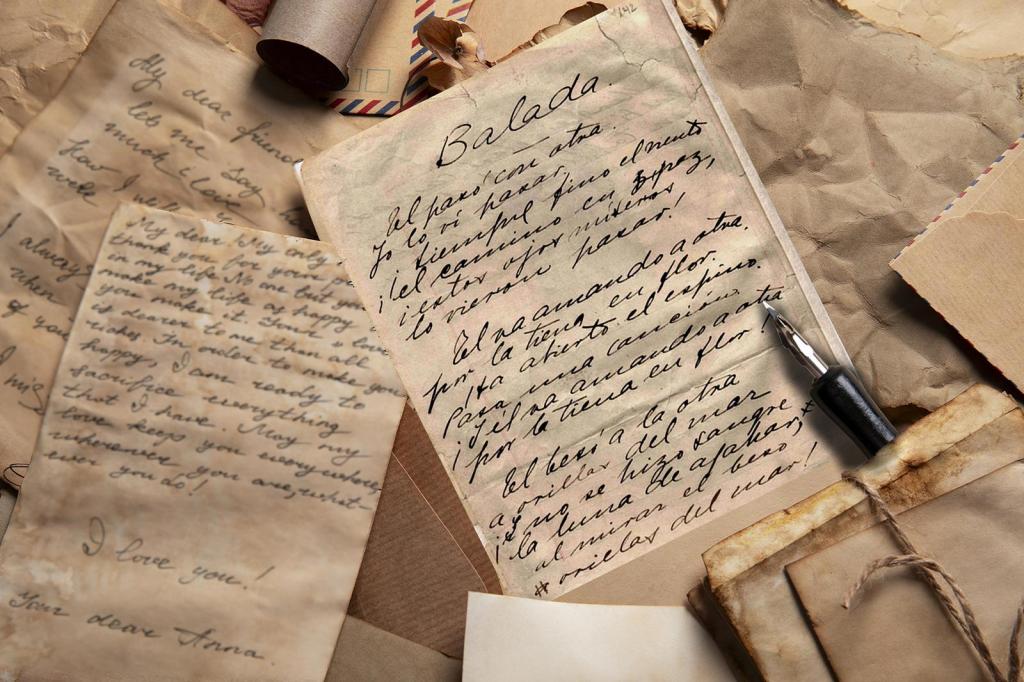 My dear friend
let me say
much I love
how I
week
I always
when
If you
My dear, My only
thank you for your
in my life. No one but you
make my life as happy
you make it. Your
is dearer to me than all
riches. In order to make you
happy, I am ready to
sacrifice everything
that I have. May my
love keeps you everywhere,
wherever you are, what-
ever you do!
I love you!
Your dear Anna.
142
Balada.
El pasó con otra.
Yo lo vi pasar.
¡ siempre fino el viento
¡ el camino en paz,
¡ estos ojos miseros
lo vieron pasar!
El va amando a otra.
por la tierra en flor.
¡Ha abierto el espino.
Pasa una canción.
¡ y el va amando a otra
¡ por la tierra en flor!
El besó a la otra
a orillas del mar
¡ y no se hizo sangre *
¡ la luna de azahar,
al mirar el beso
* orillas del mar!